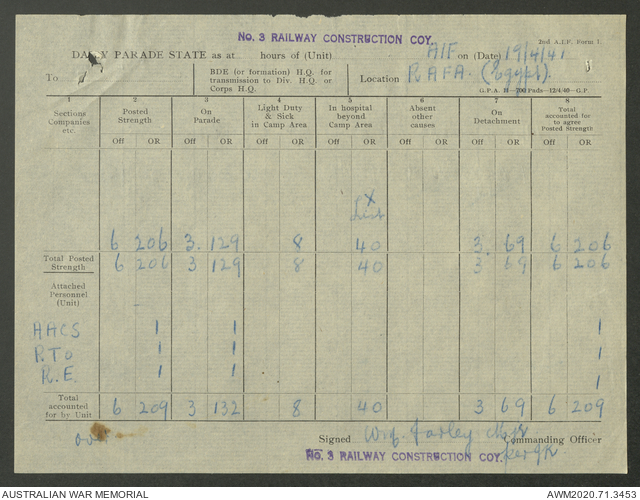 No. 3 RAILWAY CONSTRUCTION COY.
2nd A.I.F. Form 1.
DAILY PARADE STATE as at hours of (Unit) AIF on (Date) 19/4/41
To
BDE (or formation) H.Q. for
transmission to Div. H.Q. or
Corps H.Q.
Location RAFA. (Egypt).
G.P.A. H—700 Pads—12/4/40—G.P
1 2 3 4 5 6 7 8
Sections
Companies
etc.
Posted
Strength
On
Parade
Light Duty
& Sick
in Camp Area
In hospital
beyond
Camp Area
Absent
other
causes
On
Detachment
Total
accounted for
to agree
Posted Strength
Off OR Off OR Off OR Off OR Off OR Off OR Off OR
x
List
6 206 3. 129 8 40 3. 69 6 206
Total Posted
Strength 6 206 3 129 8 40 3 69 6 206
Attached
Personnel
(Unit)
HHCS 1 1 1
R.To 1 1 1
R.E. 1 1 1
Total
accounted
for by Unit 6 209 3 132 8 40 3 69 6 209
Signed Farley Commanding Officer
No. 3 RAILWAY CONSTRUCTION COY.
AUSTRALIAN WAR MEMORIAL
AWM2020.71.3453